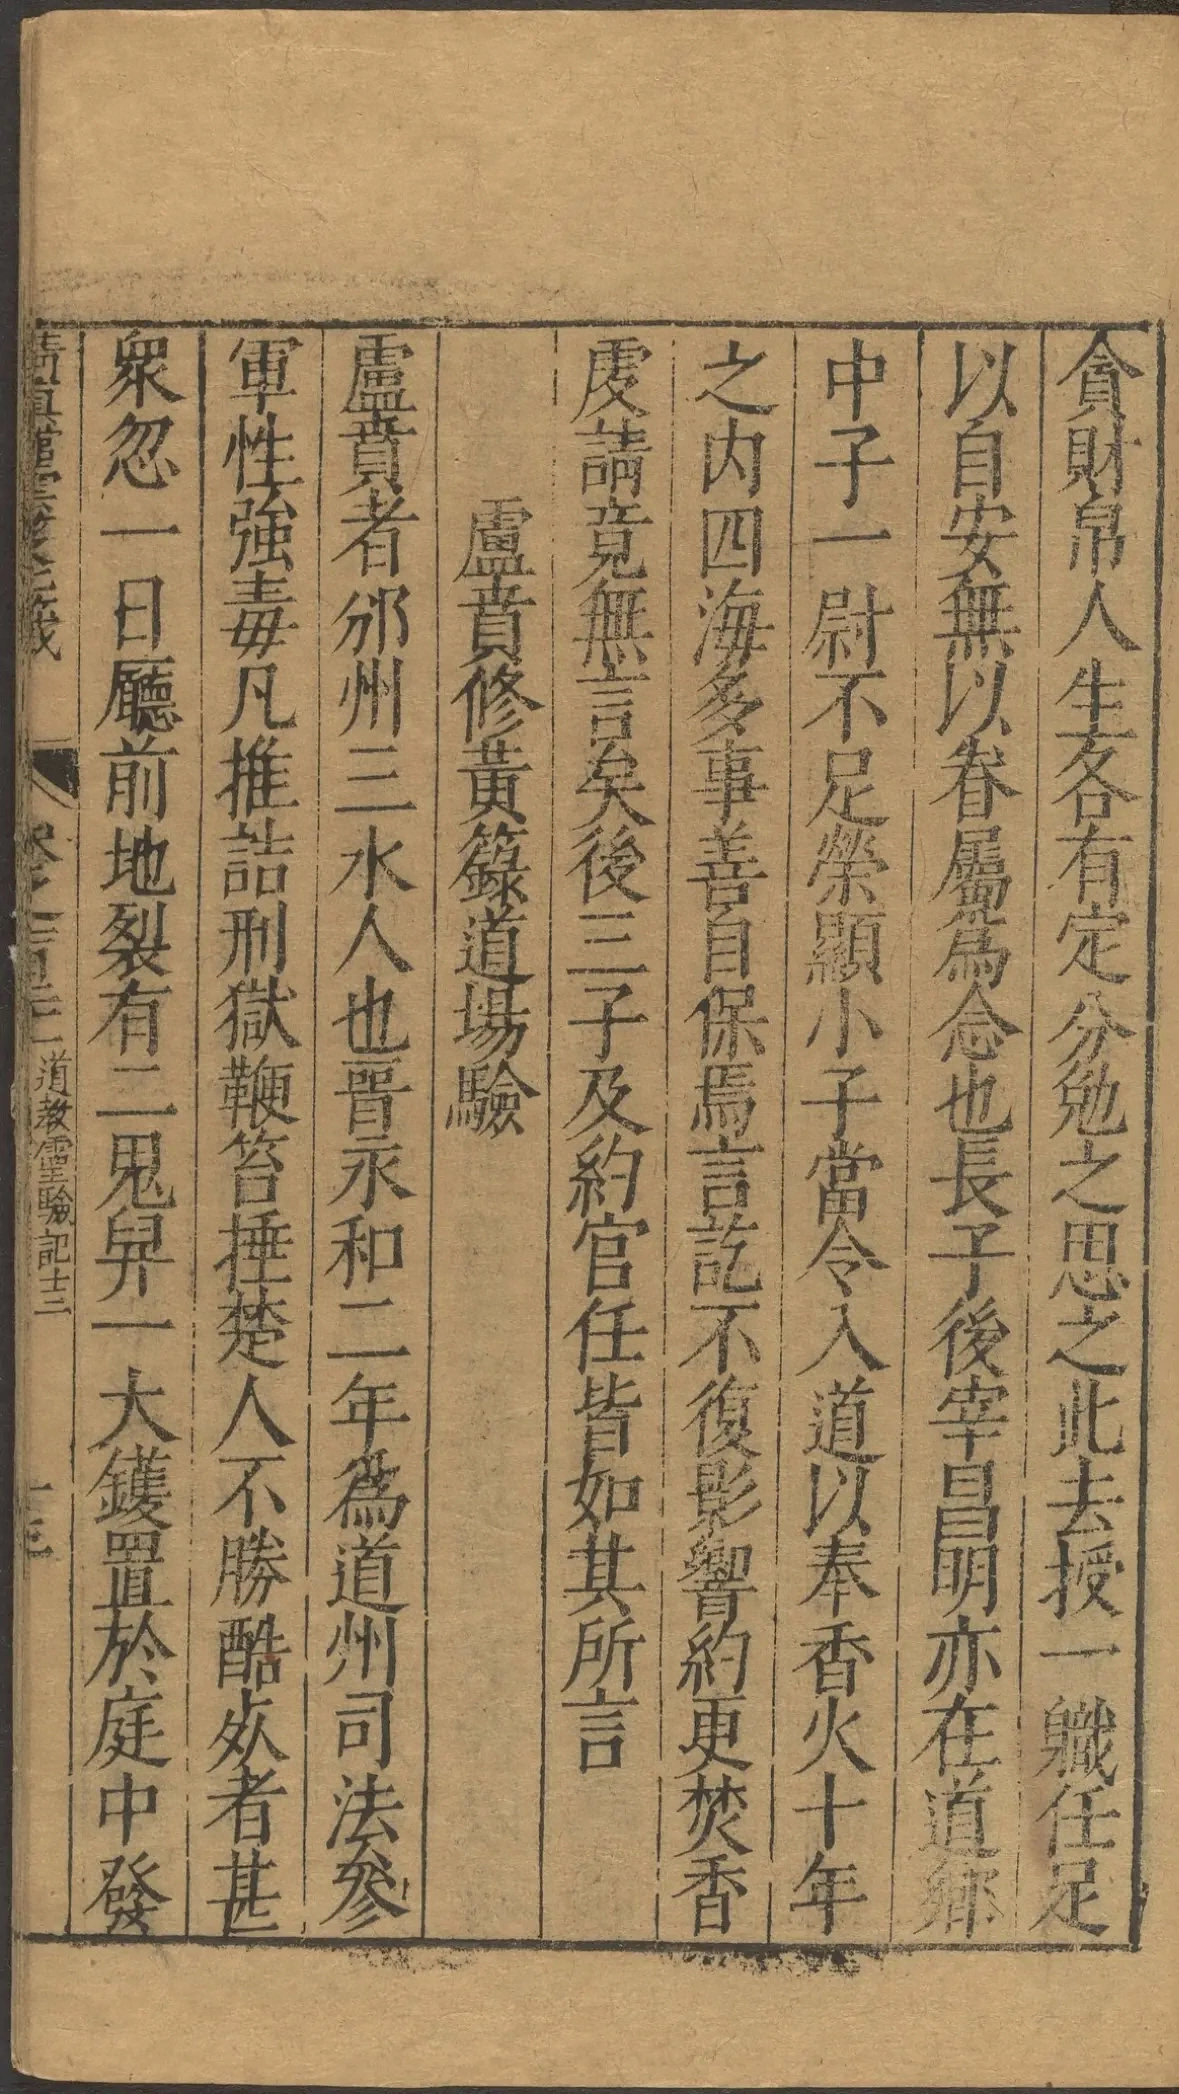 貪財帛人生各有定分勉之思之此去授一軄任足
以自安無以眷屬爲念也長子後宰昌明亦在道鄉
中子一尉不足榮顯小子當令入道以奉香火十年
之内四海多事善自保焉言訖不復影響約更焚香
虔請竟無言矣後三子及約官任皆如其所言
盧賁修黃籙道場驗
盧賁者邠州三水人也晋永和二年爲道州司法叅
軍性強毒凡推詰刑獄鞭笞捶楚人不勝酷㱙者甚
衆忽一日廳前地裂有二鬼舁一大鑊置於庭中發
清真館雲笈七籤 卷之一百二十一 道教靈驗記 十三